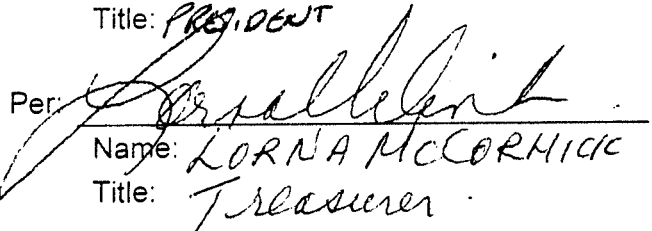 Title: PRESIDENT
Per:
Name: LORNA McCORMICK
Title: Treasurer.